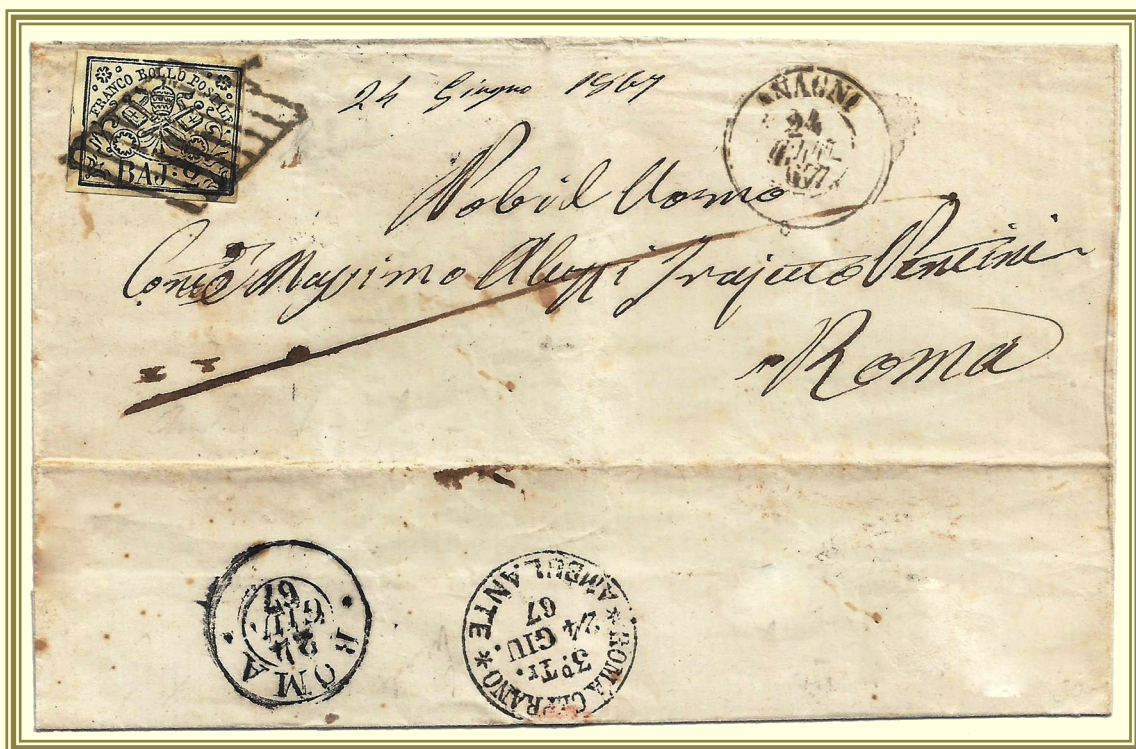 FRANCO BOLLO POSTALE
BAJ: 2
24 Giugno 1867
ANAGNI
24
67
Nobil Uomo
Conte Massimo Trajetto
Roma
ROMA
24
GIU
67
ROMA CEPRANO
AMBULANTE
3º Tr.
24 GIU.
67